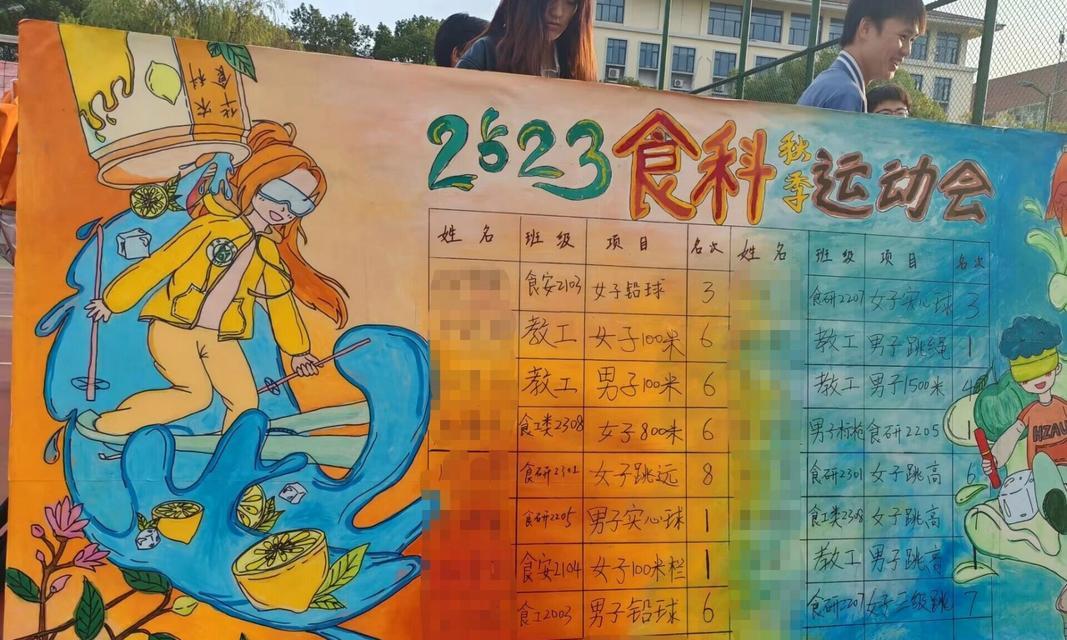 华农
食科
2023食科秋季运动会
姓名 班级 项目 名次 姓名 班级 项目 名次
食安2103 女子铅球 3 食研2207 女子实心球 3
教工 女子100米 6 教工 男子跳绳 1
教工 男子100米 6 教工 男子1500米 4
食工类2308 女子800米 6 男子标枪 食研2205 1
食研2301 女子跳远 8 食研2301 女子跳高 6
食研2205 男子实心球 1 食工类2308 女子跳高
食安2104 女子100米栏 1 教工 男子跳高
食工2003 男子铅球 6 食研2207 女子三级跳 7
HZAU